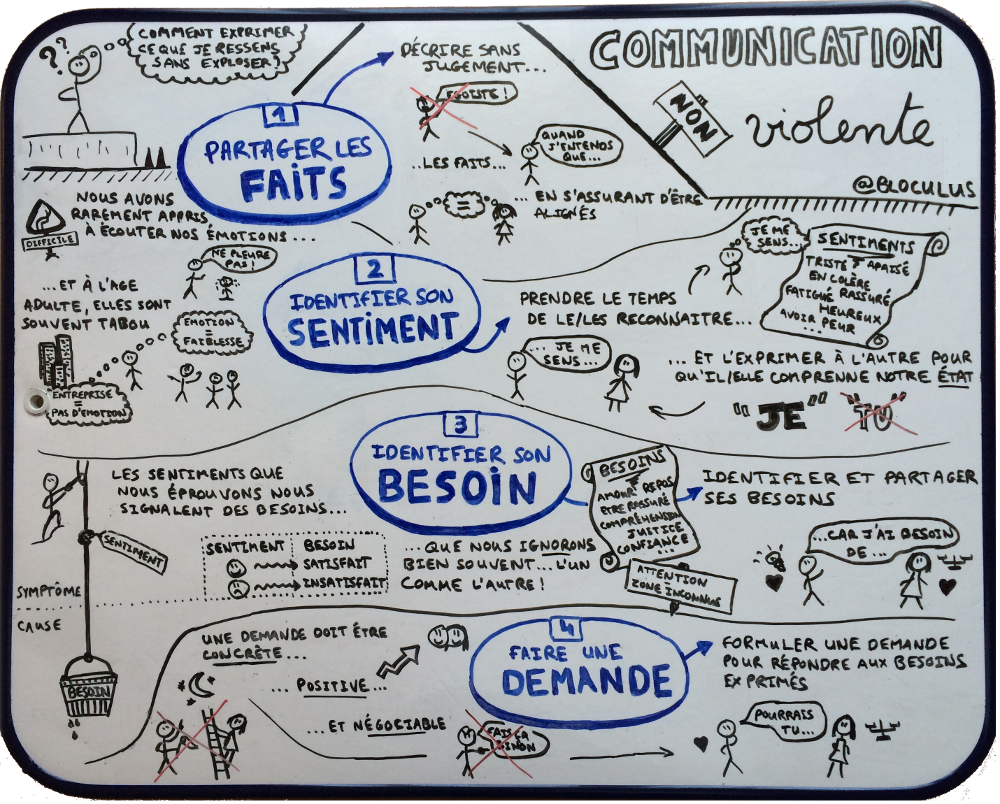 COMMUNICATION
NON
violente
@BLOCULUS
??
COMMENT EXPRIMER
CE QUE JE RESSENS
SANS EXPLOSER?
1
PARTAGER LES
FAITS
DÉCRIRE SANS
JUGEMENT...
EGOÏSTE !
...LES FAITS...
QUAND
J'ENTENDS
QUE...
=
... EN S'ASSURANT D'ÊTRE
ALIGNÉS
DIFFICILE
NOUS AVONS
RAREMENT APPRIS
À ÉCOUTER NOS ÉMOTIONS ...
NE PLEURE
PAS !
...ET À L'AGE
ADULTE, ELLES SONT
SOUVENT TABOU
EMOTION
=
FAIBLESSE
ENTREPRISE
=
PAS D'EMOTION
2
IDENTIFIER SON
SENTIMENT
PRENDRE LE TEMPS
DE LE/LES RECONNAITRE...
JE ME
SENS...
SENTIMENTS
TRISTE APAISÉ
EN COLÈRE
FATIGUÉ RASSURÉ
HEUREUX
AVOIR PEUR
...
... JE ME
SENS...
... ET L'EXPRIMER À L'AUTRE POUR
QU'IL/ELLE COMPRENNE NOTRE ÉTAT
"JE" "TU"
3
IDENTIFIER SON
BESOIN
LES SENTIMENTS QUE
NOUS ÉPROUVONS NOUS
SIGNALENT DES BESOINS...
SENTIMENT
SYMPTÔME
CAUSE
BESOIN
SENTIMENT BESOIN
SATISFAIT
INSATISFAIT
...QUE NOUS IGNORONS
BIEN SOUVENT...L'UN
COMME L'AUTRE !
BESOINS
AMOUR REPOS
ETRE RASSURÉ
COMPRÉHENSION
JUSTICE
CONFIANCE
...
ATTENTION
ZONE INCONNUE
IDENTIFIER ET PARTAGER
SES BESOINS
...CAR J'AI BESOIN
DE ...
4
FAIRE UNE
DEMANDE
UNE DEMANDE DOIT ÊTRE
CONCRÈTE...
... POSITIVE...
...ET NÉGOCIABLE
FAIS ÇA
SINON
FORMULER UNE DEMANDE
POUR RÉPONDRE AUX BESOINS
EXPRIMÉS
POURRAIS
TU...